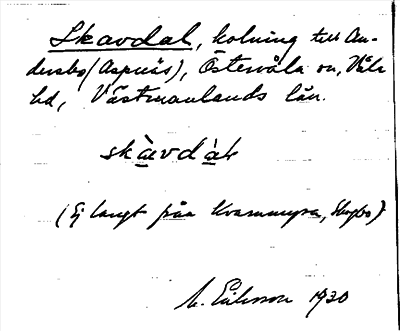 Skavdal, kolning till An-
dersbo (Aspnäs), Östervåla sn, Våla
hd, Västmanlands län.
skàvdàl
(Ej långt från Kvarnmyra,
M. Eriksson 1930